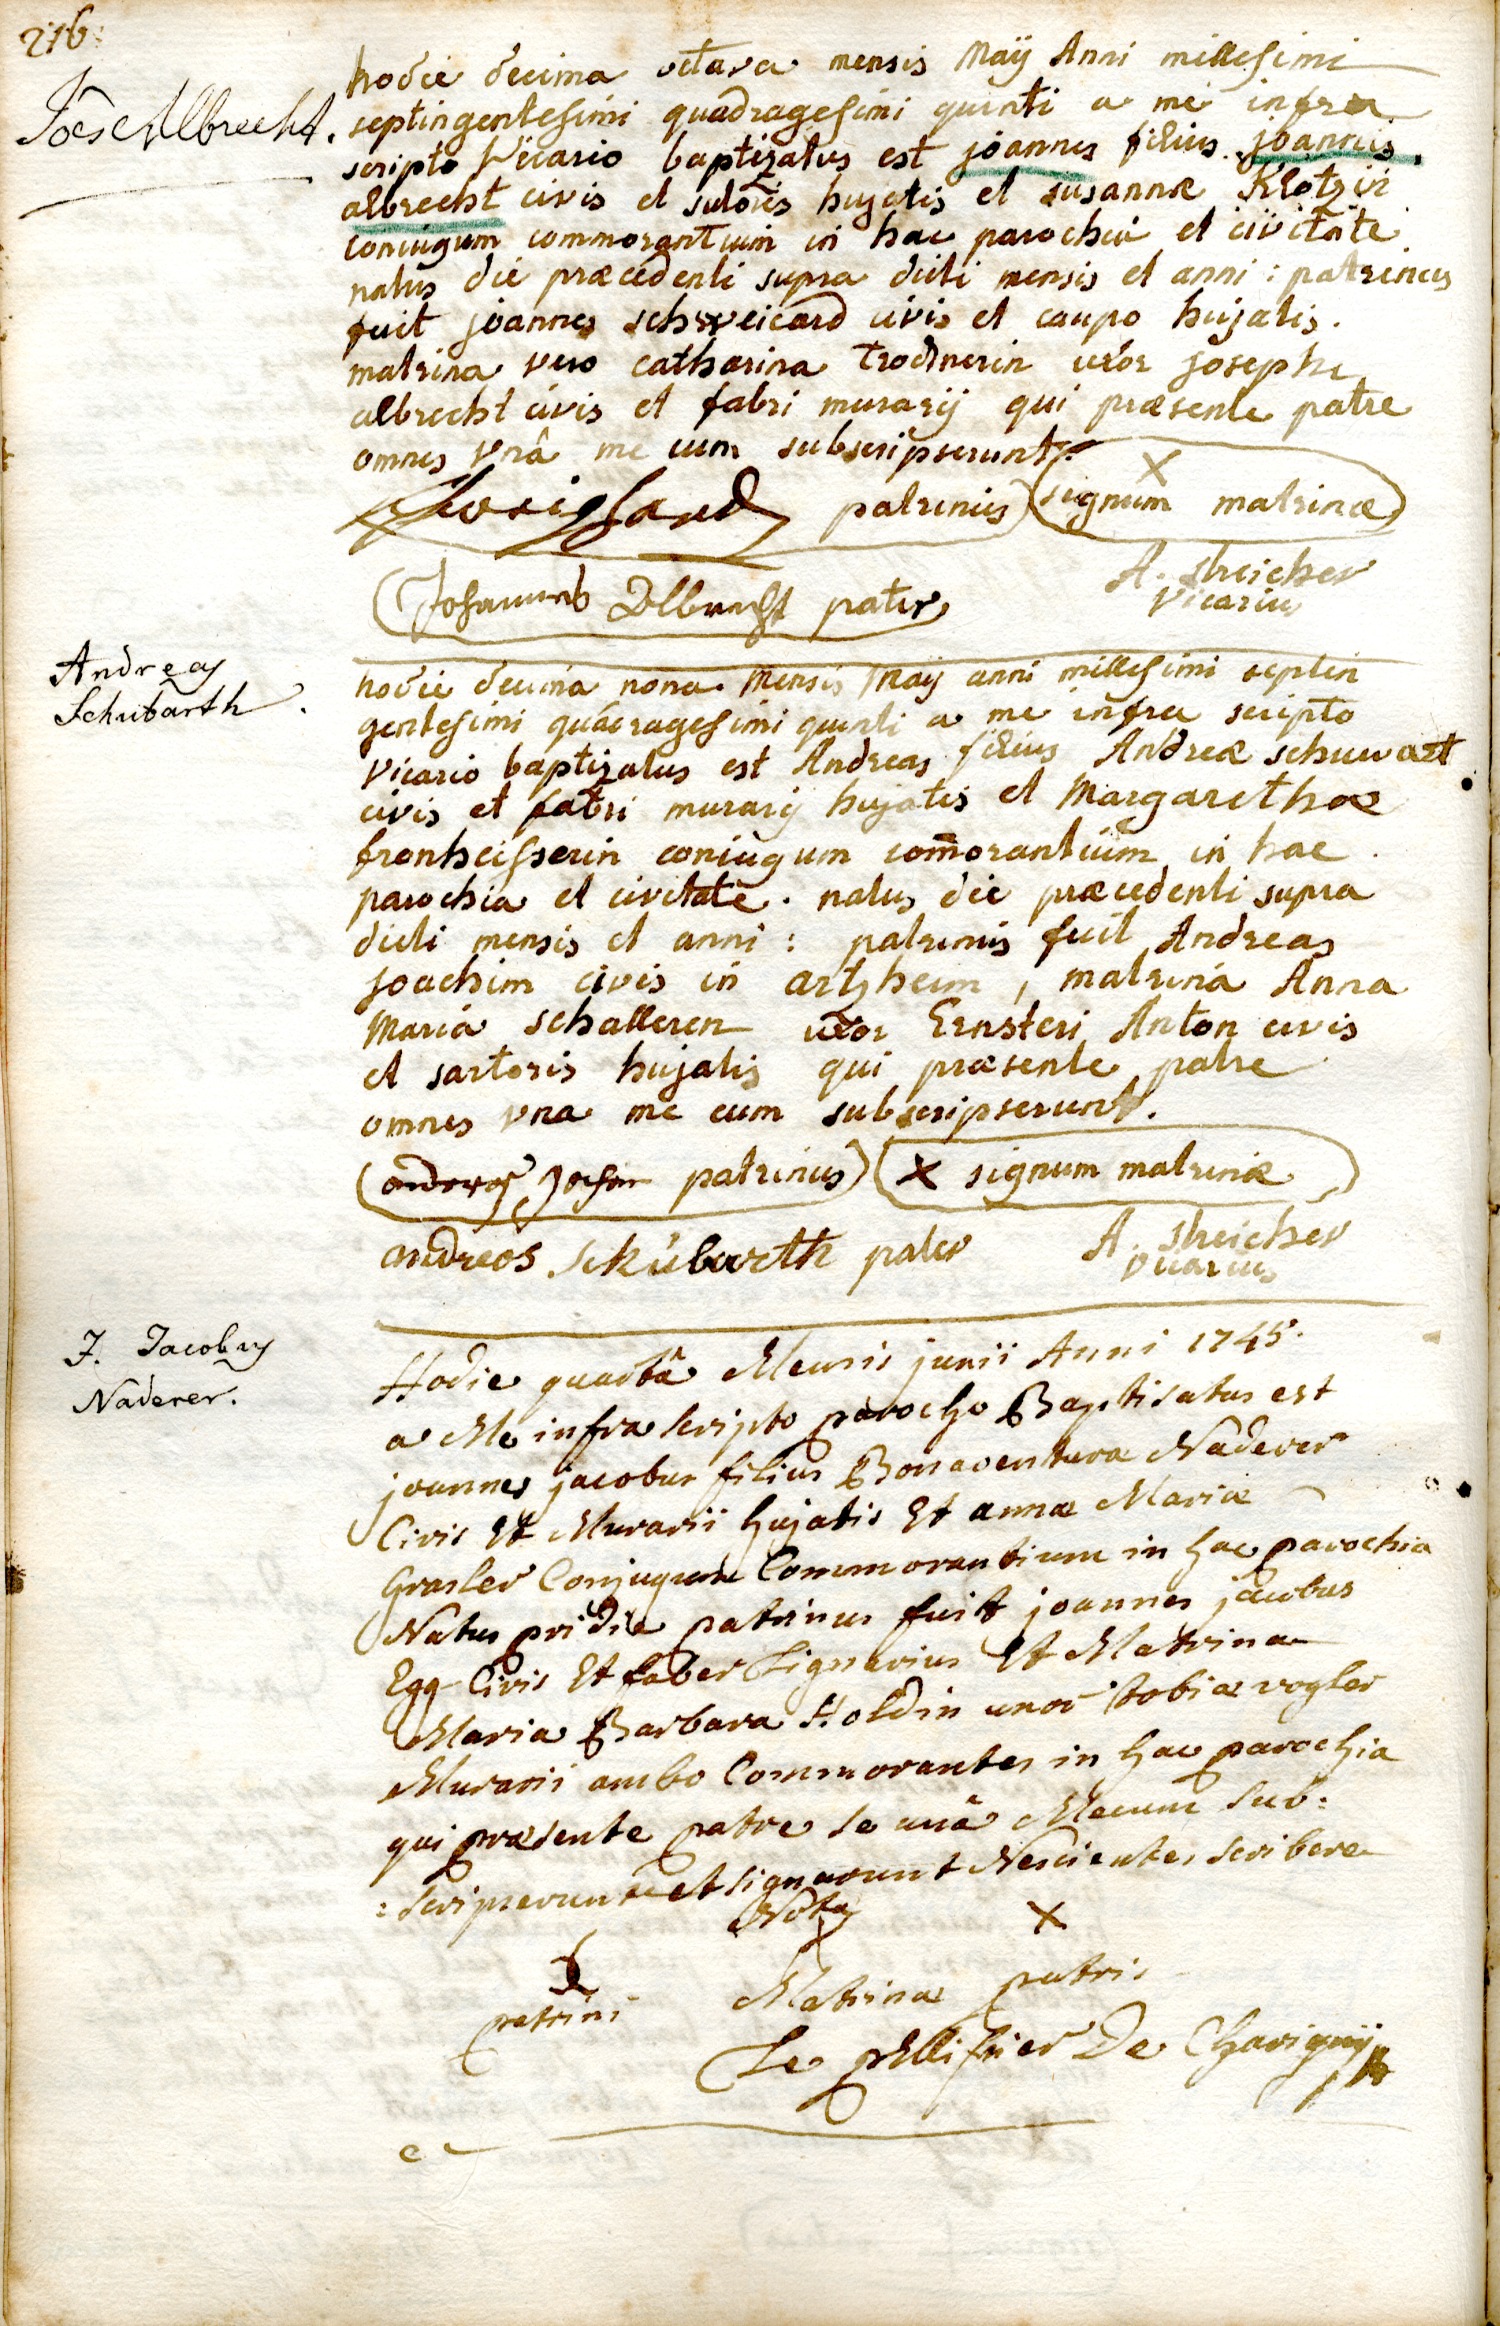 216
Joes Albrecht.
hodie decima octava mensis Maÿ Anni millesimi
septingentesimi quadragesimi quinti a me infra
scripto Vicario baptizatus est joannes filius joannis
albrecht civis et sutoris hujatis et susannæ Klotzin
coniugum commorantium in hac parochia et civitate
natus die præcedenti supra dicti mensis et anni : patrinus
fuit joannes schweicard civis et caupo hujatis.
matrina vero catharina trodnerin uxor josephi
albrecht civis et fabri murarÿ qui præsente patre
omnes vnâ me cum subscripserunt.
patrinus) (X signum matrinæ)
(Johannes Albrecht pater
A. Streicher
Vicarius
Andreas
Schubarth.
hodie decima nona Mensis Maÿ anni millesimi septin
gentesimi quadragesimi quinti a me infra scripto
Vicario baptizatus est Andreas filius Andreæ schuwart
civis et fabri murarÿ hujatis et Margarethæ
fronheisserin coniugum com̄orantium in hac
parochia et civitate. natus die præcedenti supra
dicti mensis et anni : patrinus fuit Andreas
joachim civis in artzheim, matrina Anna
Maria schalleren uxor Ernsteri Anton civis
et sartoris hujatis qui præsente patre
omnes vna me cum subscripserunt.
(andreas patrinus) (X signum matrinæ)
andreas schübarth pater
A. Streicher
vicarius
J. Jacobus
Naderer.
Hodie quartâ Mensis junii Anni 1745.
a Me infra scripto parocho Baptisatus est
joannes jacobus filius Bonaventura Naderer
Civis Et Murarii hujatis Et annæ Mariæ
Grasler Conjugum Commorantium in hac parochia
Natus pridie patrinus fuit joannes jacobus
Egg Civis Et faber Lignarius Et Matrina
Maria Barbara Holdin uxor tobiæ vogler
Murarii ambo Commorantes in hac parochia
qui præsente patre se unâ Mecum sub:
:scripserunt et signarunt Nescientes scribere
Nota X
patrini Matrinæ patris
Le pellissier De Chavignÿ